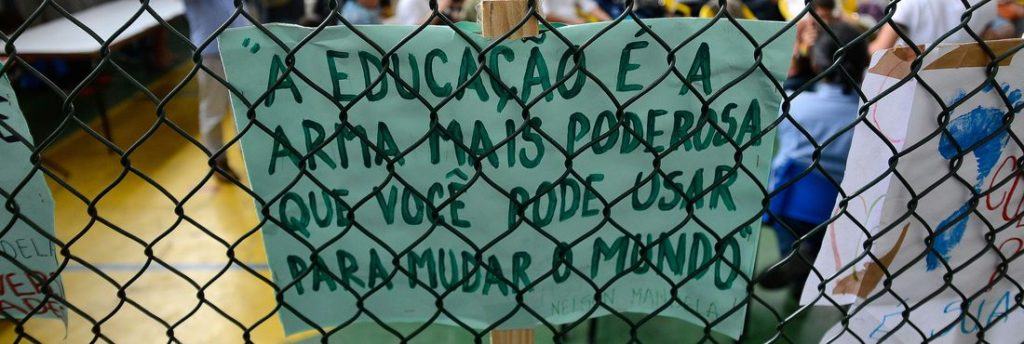 "A EDUCAÇÃO É A
ARMA MAIS PODEROSA
QUE VOCÊ PODE USAR
PARA MUDAR O MUNDO"
NELSON MANDELA
DELA
É SUA